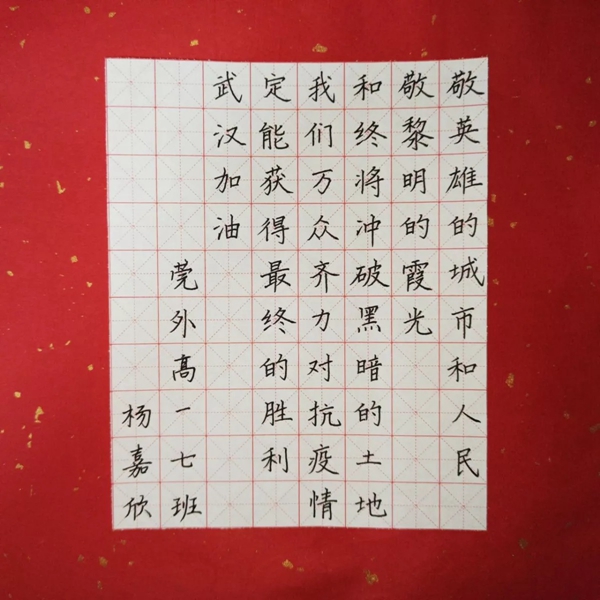 敬英雄的城市和人民
敬黎明的霞光
和终将冲破黑暗的土地
我们万众齐力对抗疫情
定能获得最终的胜利
武汉加油
莞外高一七班
杨嘉欣